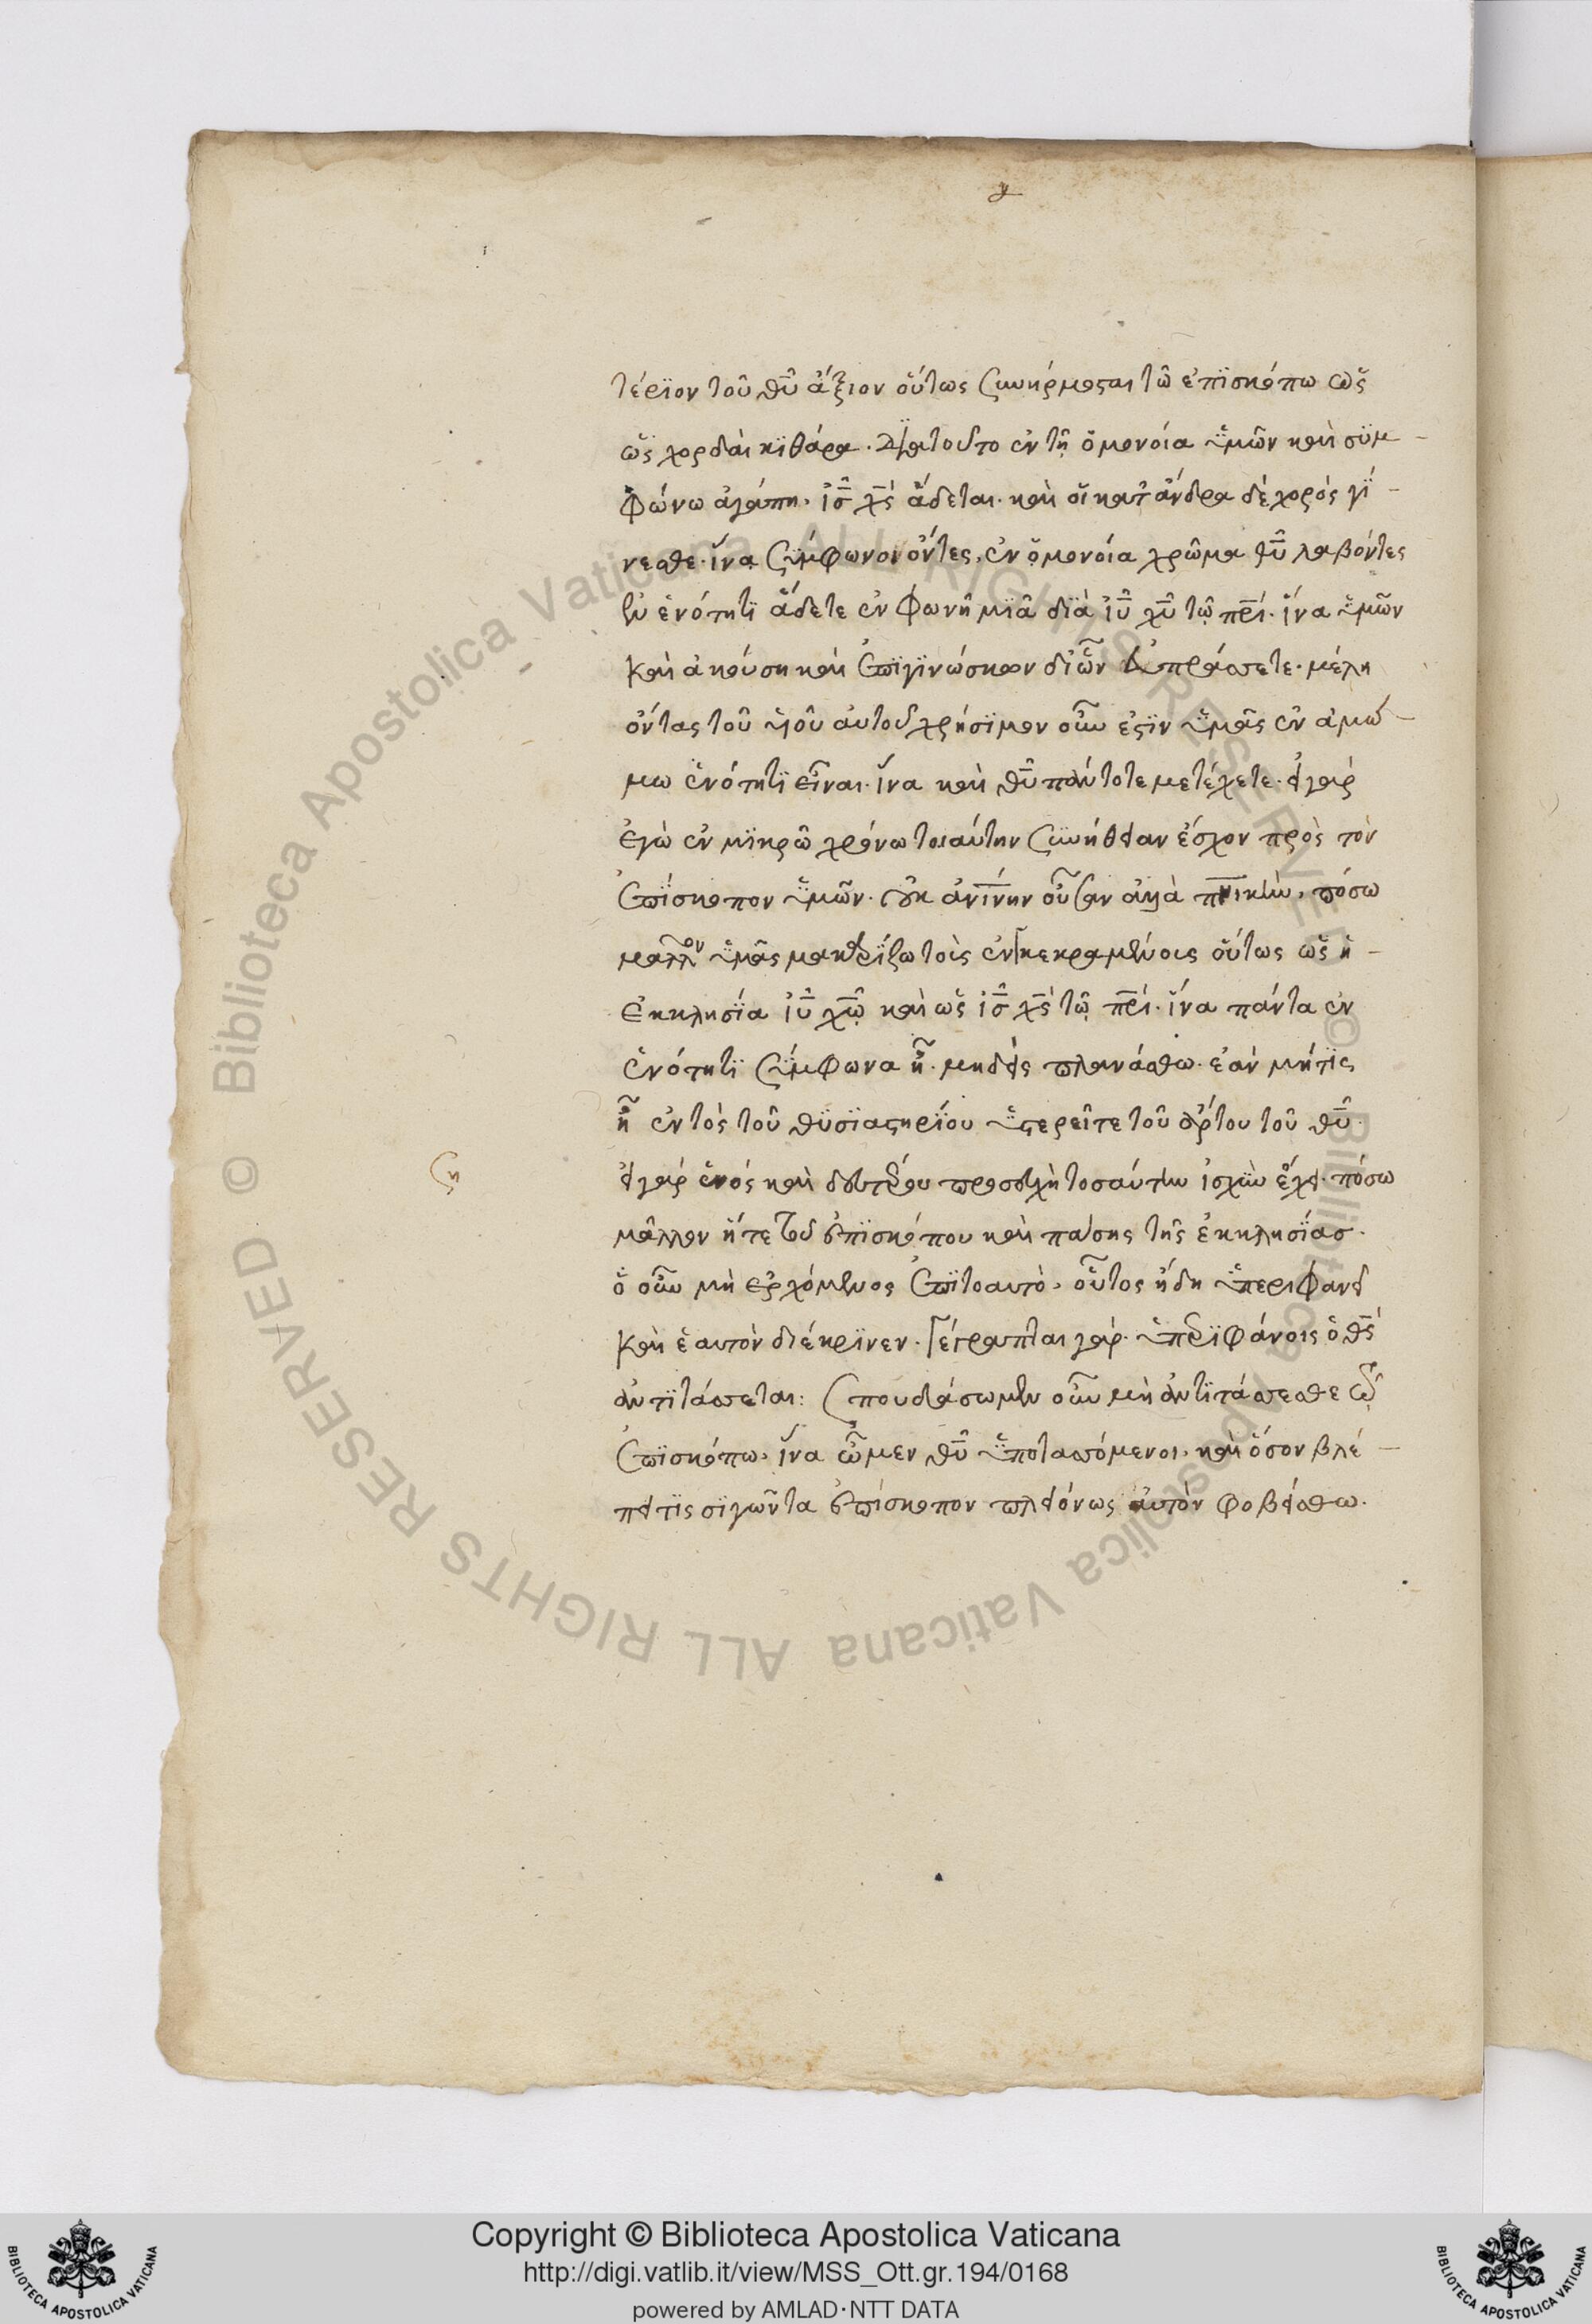 τέριον τοῦ θῦ ἄξιον οὕτως συνήρμοσται τῶ ἐπϊσκόπω ὡς
ὡς χορδαὶ κϊθάρα. διατοῦτο ἐν τῆ ὁμονοία ὑμῶν καὶ συμ-
φώνω ἀγάπη. ἰσ χς ἄδεται. καὶ οἱ κατ᾽ ἄνδρα δὲ χορός γί-
νεσθε. ἵνα σύμφωνοι ὄντες, ἐν ὁμονοία χρῶμα θῦ λαβόντες
ἐν ἑνότητϊ ἄδετε ἐν φωνῆ μϊᾶ δϊὰ ἰῦ χῦ τῶ πρι. ἵνα ὑμῶν
καὶ ἀκούση καὶ ἐπϊγϊνώσκων δι᾽ ὧν εὖ πράσσετε. μέλη
ὄντας τοῦ υἱοῦ αὐτοῦ χρήσϊμον οὖν ἐστϊν ὑμᾶς ἐν ἀμώ-
μω ἑνότητϊ εἶναι. ἵνα καὶ θῦ πάντοτε μετέχετε. εἰ γὰρ
ἐγὼ ἐν μϊκρῶ χρόνω τοιαύτην συνήθειαν ἔσχον πρὸς τὸν
ἐπϊσκοπον ὑμῶν. οὐκ ἀνίνην οὖσαν ἀλλὰ πνικὴν, πόσω
μᾶλλον ὑμᾶς μακαρίζω τοὶς ἐνκεκραμένοις οὕτως ὡς ἡ-
ἐκκλησϊα ἰῦ χω καὶ ὡς ἰσ χς τῶ πρι. ἵνα πάντα ἐν
ἑνότητϊ σύμφωνα ἦ. μηδεὶς πλανάσθω. ἐὰν μήτϊς
ἦ ἐντὸς τοῦ θϋσϊαστηρϊου ὑστερεῖτε τοῦ ἄρτου τοῦ θῦ.
εἰ γὰρ ἑνός καὶ δευτέρου προσευχὴ τοσαύτην ἰσχὺν ἔχει. πόσω
μᾶλλον ἥτε τοῦ ἐπϊσκόπου καὶ πάσης τῆς ἐκκλησϊας.
ὁ οὖν μὴ ἐρχόμενος ἐπϊτοαυτὸ, οὗτος ἤδη ὑπεριφανεῖ
καὶ ἑαυτὸν διέκρϊνεν. γέγραπται γάρ. ὑπερϊφάνοις ὁ θς
ἀντϊτάσσεται: σπουδάσωμεν οὖν μὴ ἀντϊτάσσεσθε τῶ
ἐπϊσκόπω, ἵνα ὦμεν θῦ ὑποτασσόμενοι, καὶ ὅσον βλέ-
πει τϊς σϊγῶντα ἐπίσκοπον πλειόνως αὐτὸν φοβείσθω.
Copyright © Biblioteca Apostolica Vaticana
http://digi.vatlib.it/view/MSS_Ott.gr.194/0168
powered by AMLAD·NTT DATA